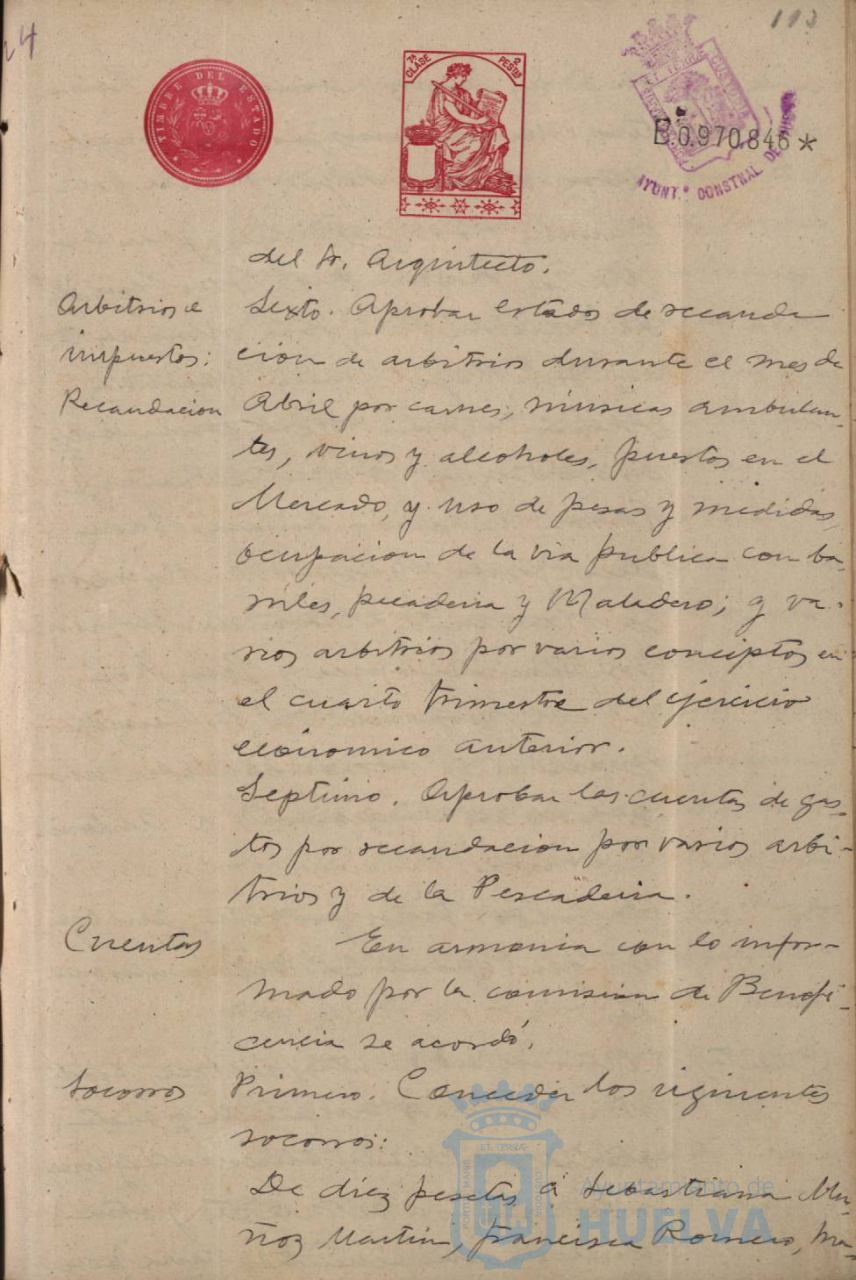 24
113
TIMBRE DEL ESTADO
7ª CLASE
2 PESTAS
B.0.970.846 *
AYUNT.º CONSTNAL DE HUELVA
del Sr. Arquitecto.
Arbitrios e
impuestos:
Recaudacion
Sexto. Aprobar estados de recauda
cion de arbitrios durante el mes de
Abril por carnes, músicas ambulan-
tes, vinos y alcoholes, puestos en el
Mercado, y uso de pesas y medidas,
ocupacion de la via publica con ba-
rriles, pescaderia y Matadero; y va-
rios arbitrios por varios conceptos en
el cuarto trimestre del ejercicio
económico anterior.
Septimo. Aprobar las cuentas de gas-
tos por recaudacion por varios arbi-
trios y de la Pescaderia.
Cuentas
En armonia con lo infor-
mado por la comision de Benefi-
cencia se acordó,
Socorros
Primero. Conceder los siguientes
socorros:
De diez pesetas á Sebastiana Mu-
ñoz Martin, Francisca Romero, Ma-
Ayuntamiento de
HUELVA